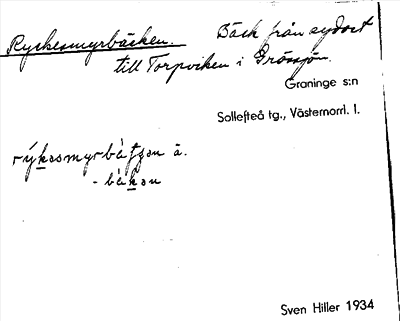 Ryckesmyrbäcken. Bäck från sydost
till Torpviken i Grössjön.
Graninge s:n
Sollefteå tg., Västernorrl. l.
rýkəsmyrbàtʃən ä.
- bàkən
Sven Hiller 1934